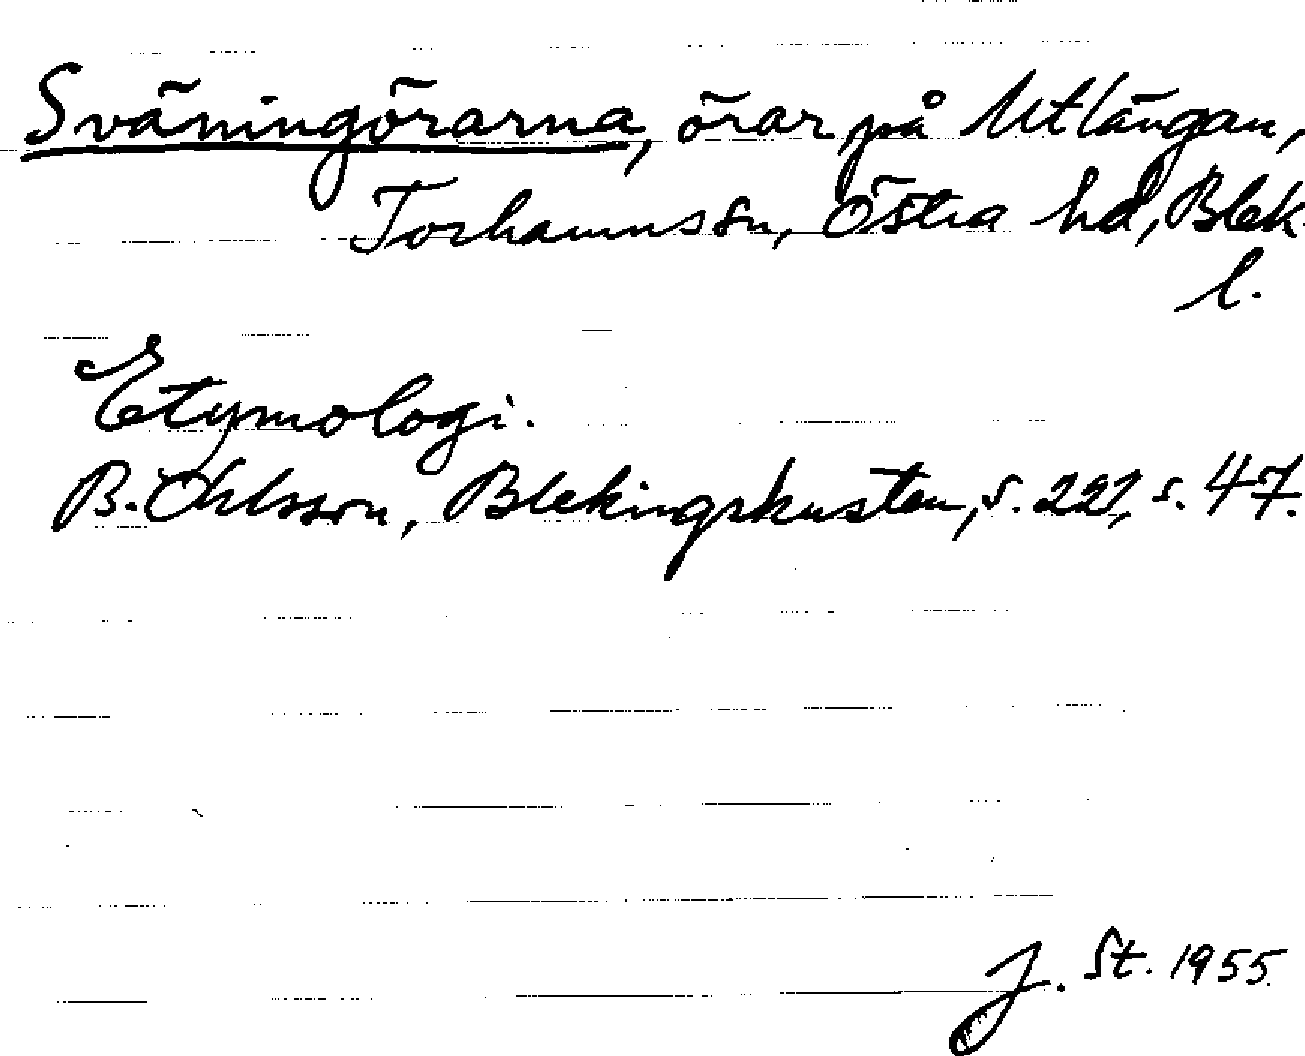 Sväningörarna, örar på Utlängan,
Torhamns sn, Östra hd, Blek.
l.
Etymologi.
B. Ohlsson, Blekingskusten, s. 221, s. 47.
J. St. 1955.